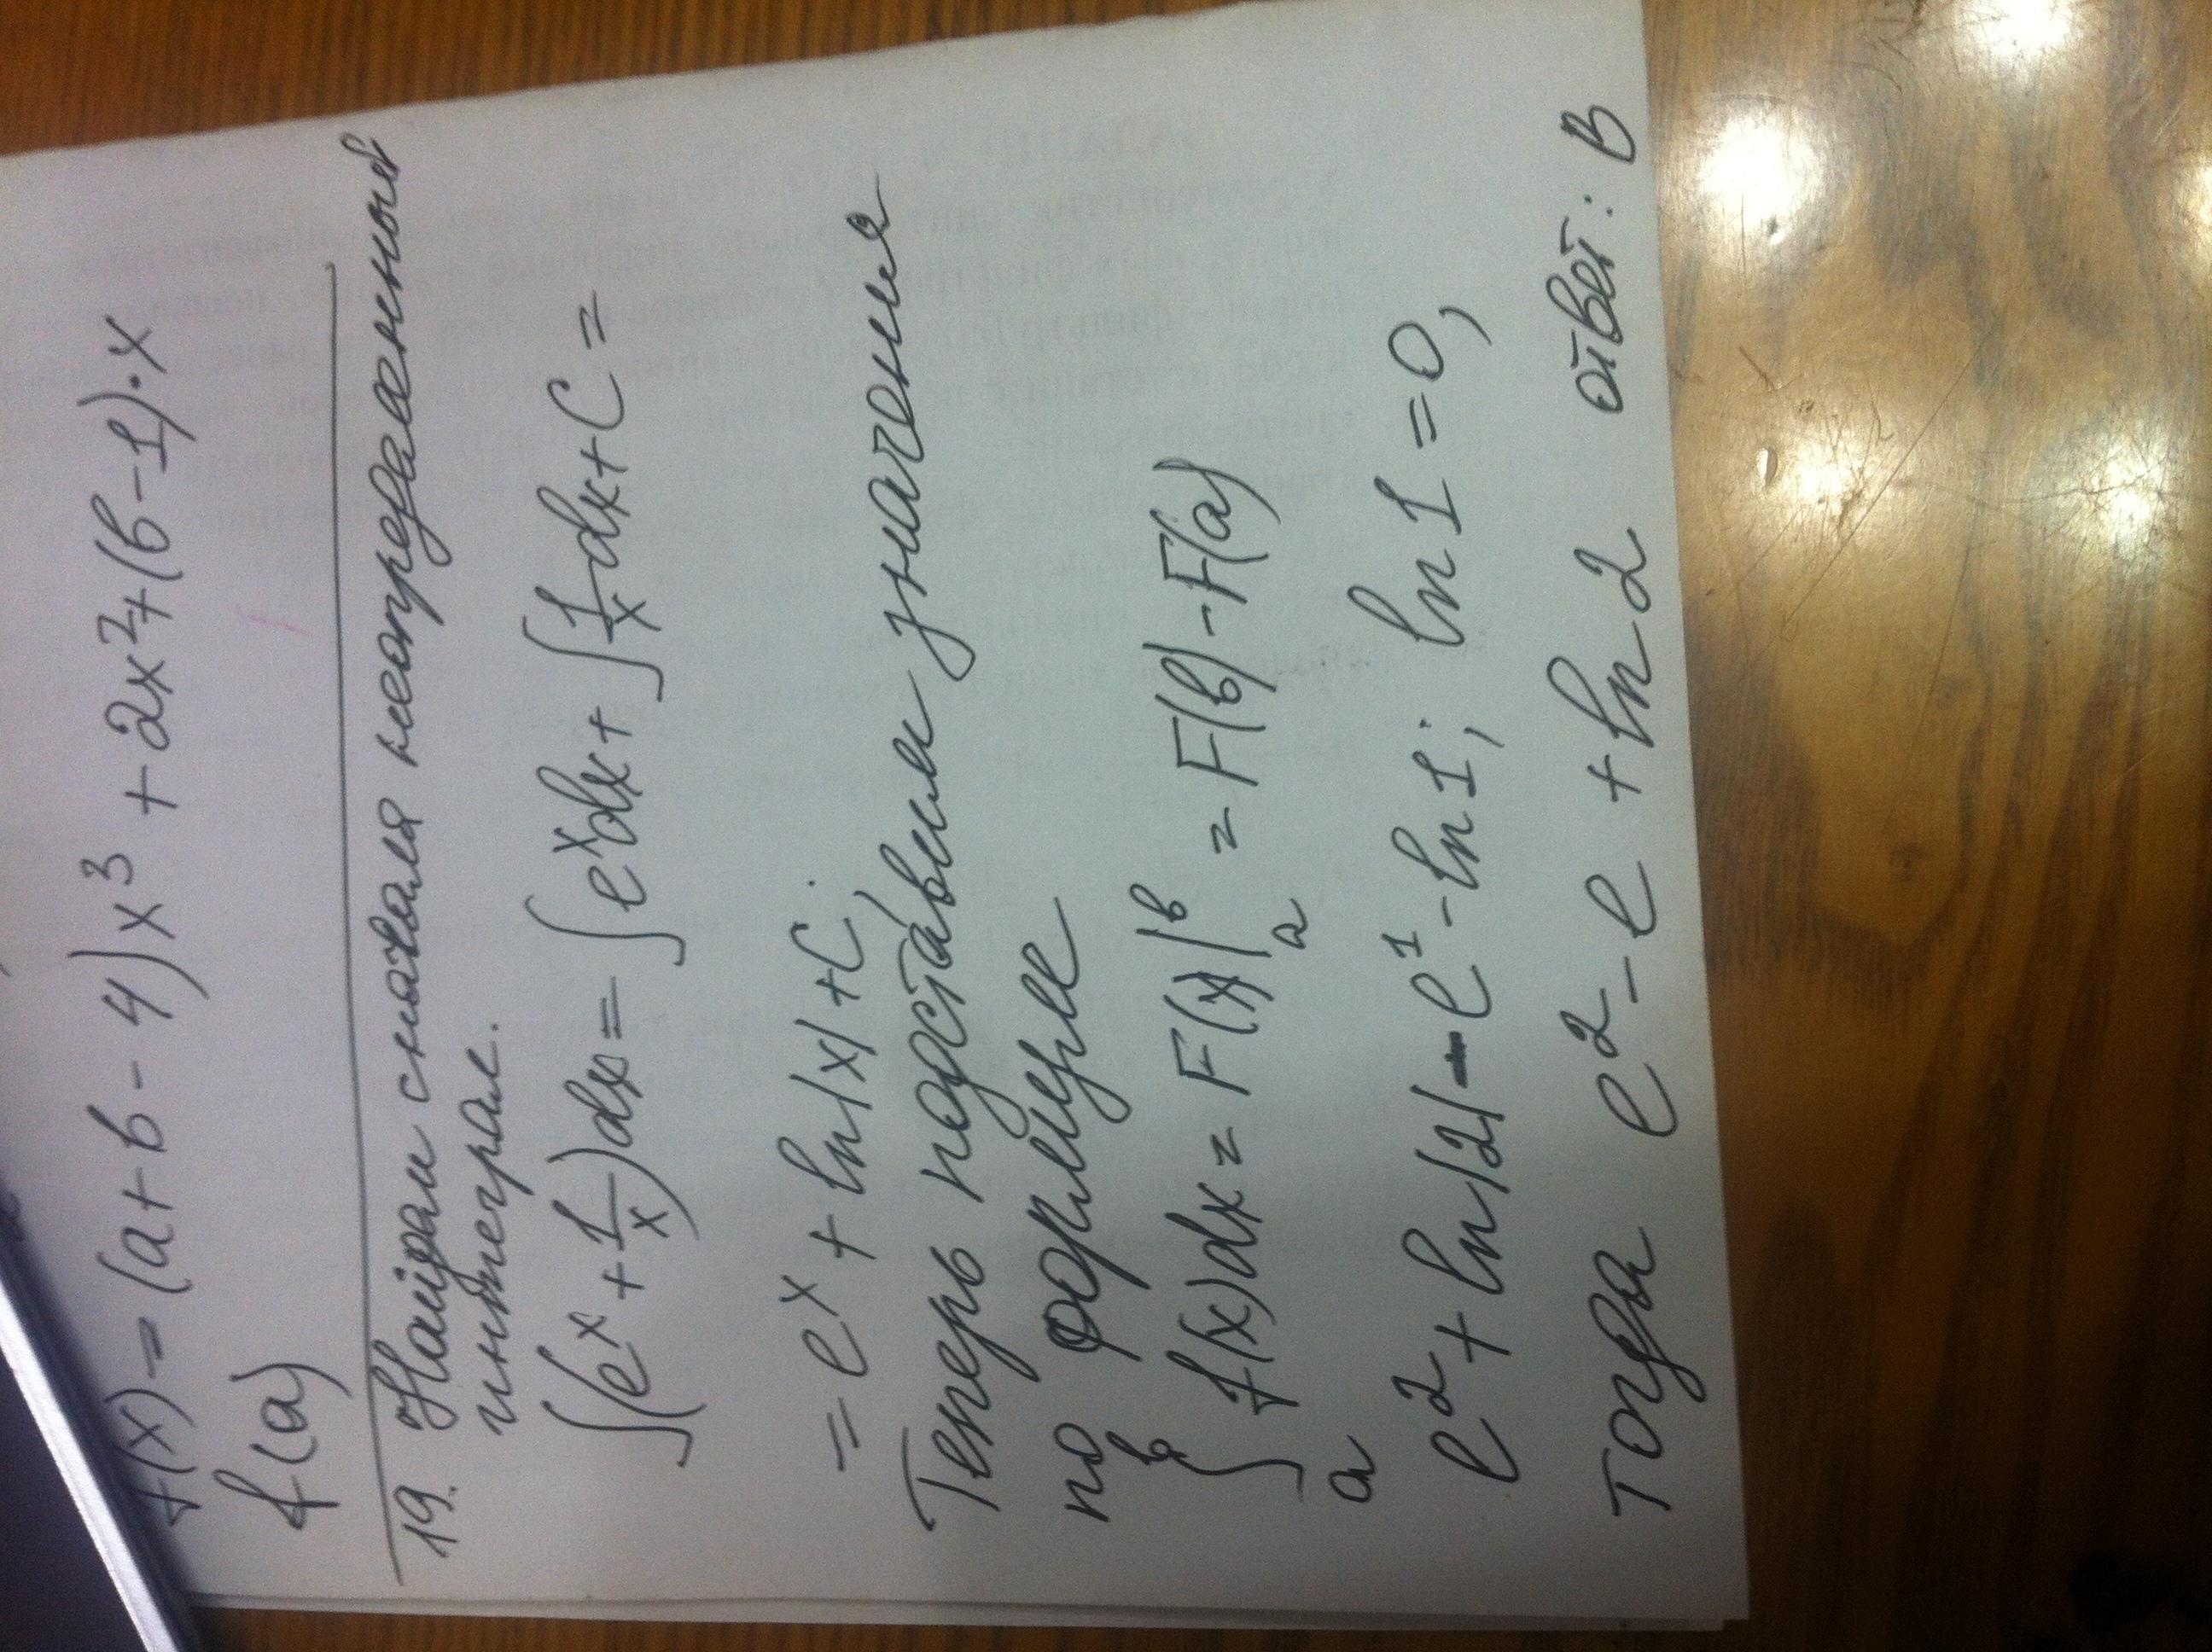 f(x) = (a+b-4)x³ + 2x² + (b-1)·x
f(a)
19. Найдем сначала неопределенный
интеграл.
∫(eˣ + 1/x)dx = ∫eˣdx + ∫1/x dx + C =
= eˣ + ln|x| + C;
Теперь подставим значения
по формуле
∫ₐᵇ f(x)dx = F(x)|ₐᵇ = F(b) - F(a)
e² + ln|2| - e¹ - ln1; ln1 = 0,
тогда e² - e + ln2 ответ: B